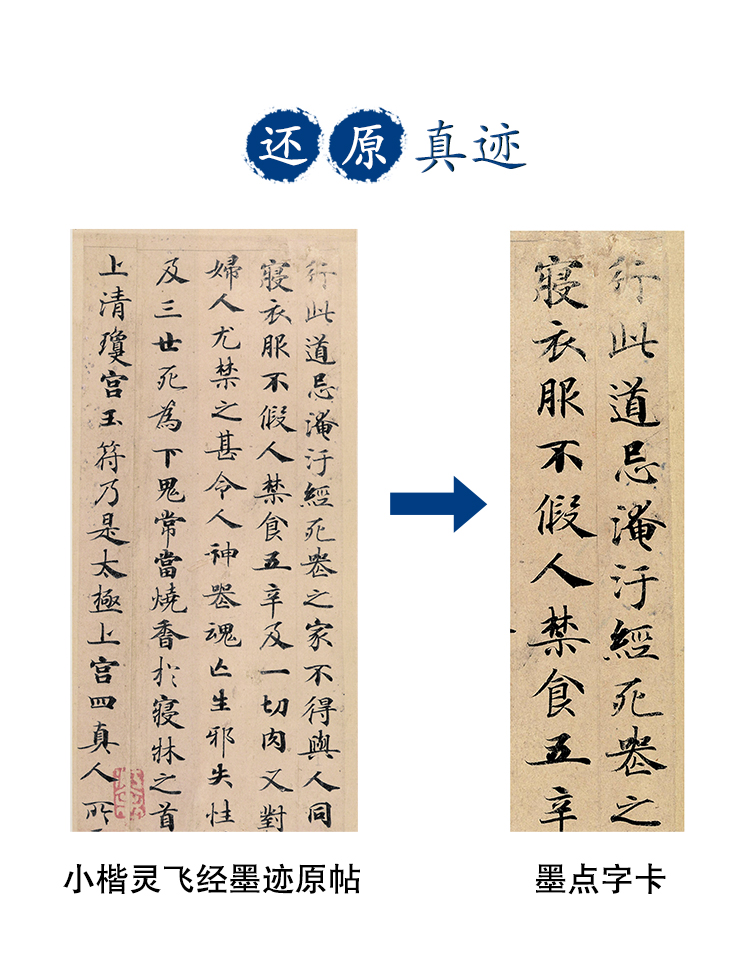 还原真迹
行此道忌淹汙經死喪之家不得與人同
寝衣服不假人禁食五辛及一切肉又對
婦人尤禁之甚令人神喪魂亡生邪失性
及三世死為下鬼常當燒香於寝牀之首
上清瓊宫玉符乃是太極上宫四真人所
行此道忌淹汙經死喪之
寝衣服不假人禁食五辛
小楷灵飞经墨迹原帖
墨点字卡